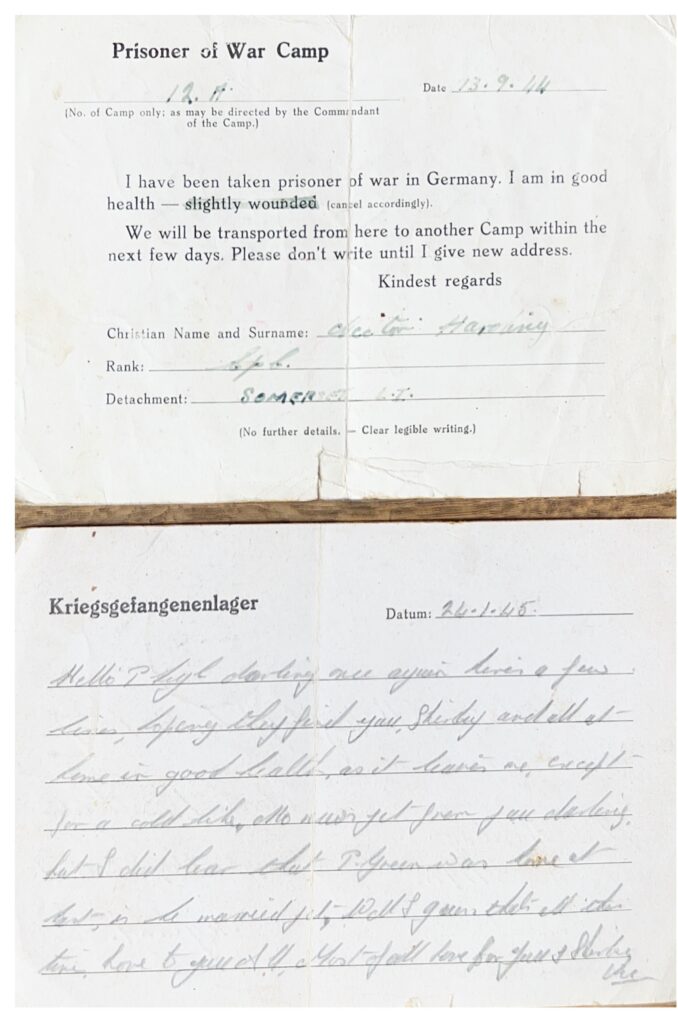 Prisoner of War Camp
12. A. Date 13.9.44
(No. of Camp only; as may be directed by the Commandant
of the Camp.)
I have been taken prisoner of war in Germany. I am in good
health — slightly wounded (cancel accordingly).
We will be transported from here to another Camp within the
next few days. Please don't write until I give new address.
Kindest regards
Christian Name and Surname:
Rank: Cpl.
Detachment: SOMERSET L.I.
(No further details. — Clear legible writing.)
Kriegsgefangenenlager Datum: 24.1.45.
Hello darling once again here's a few
lines, hoping they find you, Shirley and all at
home in good health, as it leaves me, except
for a cold like, No news yet from you darling,
but I did hear that P. Green was home at
last, is he married yet, Well I guess that's all this
time, love to you all, Most of all love for you & Shirley
Vic